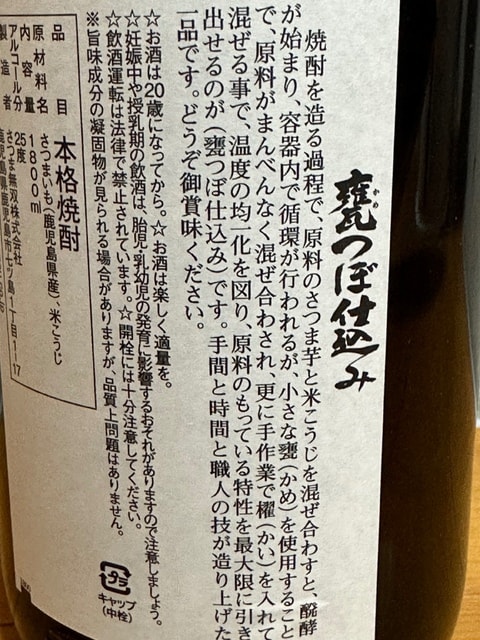 甕つぼ仕込み
かめ
焼酎を造る過程で、原料のさつま芋と米こうじを混ぜ合わすと、醗酵
が始まり、容器内で循環が行われるが、小さな甕(かめ)を使用すること
で、原料がまんべんなく混ぜ合わされ、更に手作業で櫂(かい)を入れて
混ぜる事で、温度の均一化を図り、原料のもっている特性を最大限に引き
出せるのが(甕つぼ仕込み)です。手間と時間と職人の技が造り上げた
一品です。どうぞ御賞味ください。
☆お酒は20歳になってから。☆お酒は楽しく適量を。
☆妊娠中や授乳期の飲酒は、胎児・乳幼児の発育に影響するおそれがありますので注意しましょう。
☆飲酒運転は法律で禁止されています。☆開栓には十分注意してください。
※旨味成分の凝固物が見られる場合がありますが、品質上問題はありません。
品目 本格焼酎
原材料名 さつまいも(鹿児島県産)、米こうじ
内容量 1800ml
アルコール分 25度
製造者 さつま無双株式会社
鹿児島県鹿児島市七ツ島1丁目1-17
プラ
キャップ
(中栓)